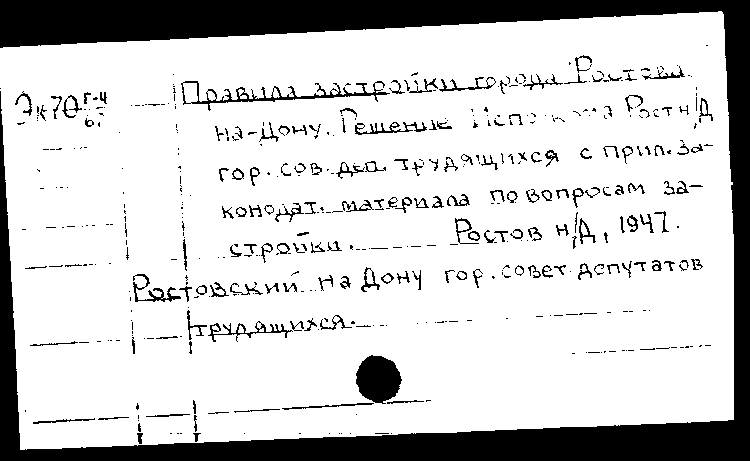 Эк70 Г-4
67
Правила застройки города Ростова
на-Дону. Решение Исполкома Рост н/Д
гор. сов. деп. трудящихся с прил. за-
конодат. материала по вопросам за-
стройки. Ростов н/Д, 1947.
Ростовский на Дону гор. совет депутатов
трудящихся.